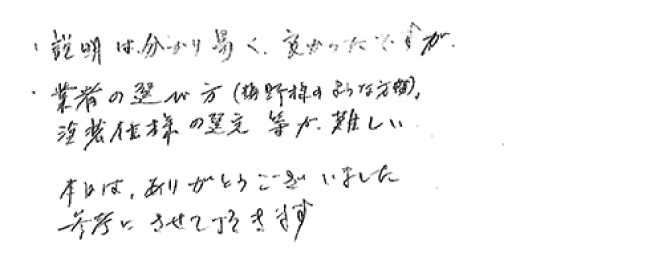 ・説明は分かり易く、良かったですが、
・業者の選び方(梅野様のような方留)、
塗装仕様の選定 等が、難しい
本日は、ありがとうございました
参考にさせて頂きます